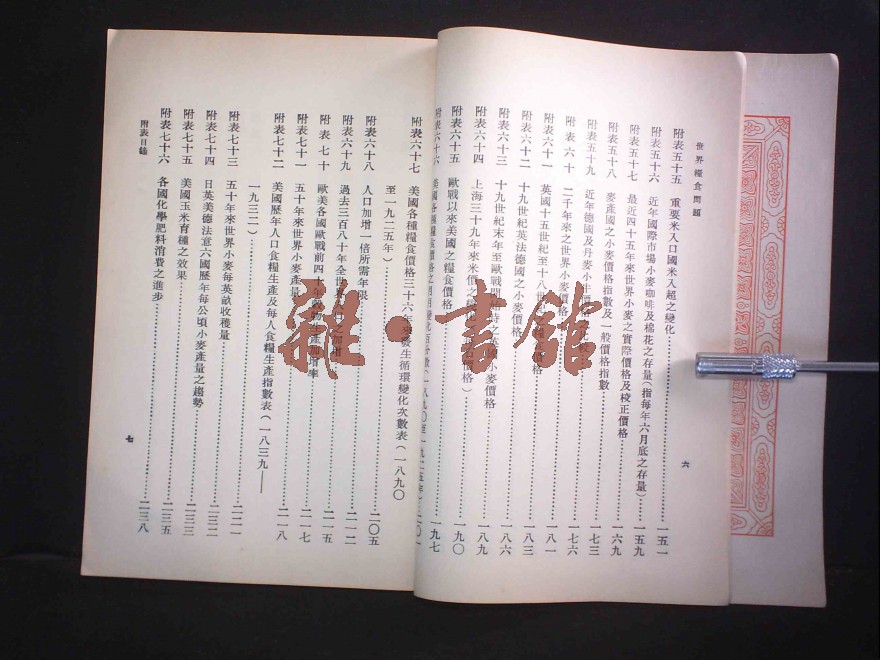 世界糧食問題
附表五十五　重要米入口國米入超之變化……一五一
附表五十六　近年國際市場小麥咖啡及棉花之存量（指每年六月底之存量）……一五九
附表五十七　最近四十五年來世界小麥之實際價格及校正價格……一六九
附表五十八　麥產國之小麥價格指數及一般價格指數
附表五十九　近年德國及丹麥小……一七三
附表六十　二千年來之世界小麥價格……一七六
附表六十一　英國十五世紀至十八世……價格……一八一
附表六十二　十九世紀英法德國之小麥價格……一八三
附表六十三　十九世紀末年至歐戰……時之英國小麥價格……一八六
附表六十四　上海三十九年來米價之……價格）……一八九
附表六十五　歐戰以來美國之糧食價格……一九〇
附表六十六　美國各種糧食價格之……變化百分數（一八九〇至一九二五年）……一九七
六
附表六十七　美國各種糧食價格三十六年來發生循環變化次數表（一八九〇
至一九二五年）……二〇一
附表六十八　人口加增一倍所需年限……二〇五
附表六十九　過去三百八十年全世界人口之加增……二一二
附表七十　歐美各國歐戰前四十年穀物生產加增率……二一五
附表七十一　五十年來世界小麥產量……二一七
附表七十二　美國歷年人口食糧生產及每人食糧生產指數表（一八三九——
一九三二）……二一八
附表七十三　五十年來世界小麥每英畝收穫量……二二一
附表七十四　日英美德法意六國歷年每公頃小麥產量之趨勢……二三二
附表七十五　美國玉米育種之效果……二三五
附表七十六　各國化學肥料消費之進步……二三八
附表目錄
七
雜·書館